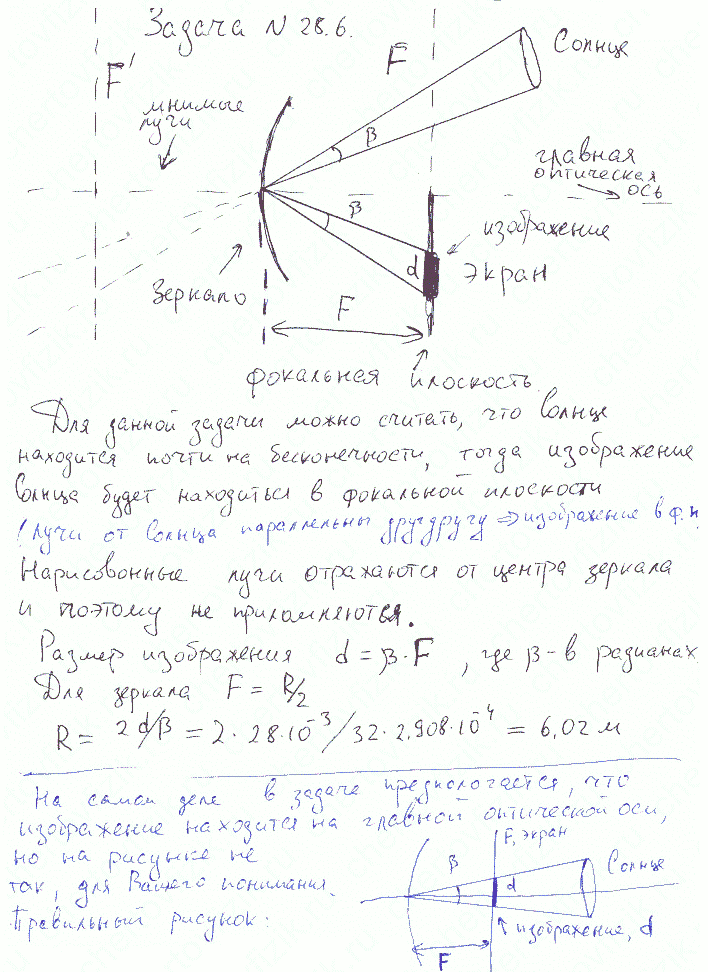 Задача N 28.6.
F'
F
Солнце
мнимые
лучи
β
главная
оптическая
ось
β
изображение
d
экран
Зеркало
F
фокальная плоскость
Для данной задачи можно считать, что Солнце
находится почти на бесконечности, тогда изображение
Солнца будет находиться в фокальной плоскости
(лучи от Солнца параллельны друг другу ⇒ изображение в ф.п.
Нарисовонные лучи отражаются от центра зеркала
и поэтому не приломляются.
Размер изображения d = β·F , где β - в радианах
Для зеркала F = R/2
R = 2d/β = 2·28·10⁻³/32·2,908·10⁻⁴ = 6,02 м
На самом деле в задаче предпологается, что
изображение находится на главной оптической оси,
но на рисунке не
так, для Вашего понимания.
Правильный рисунок:
F, экран
β
d
Солнце
изображение, d
F